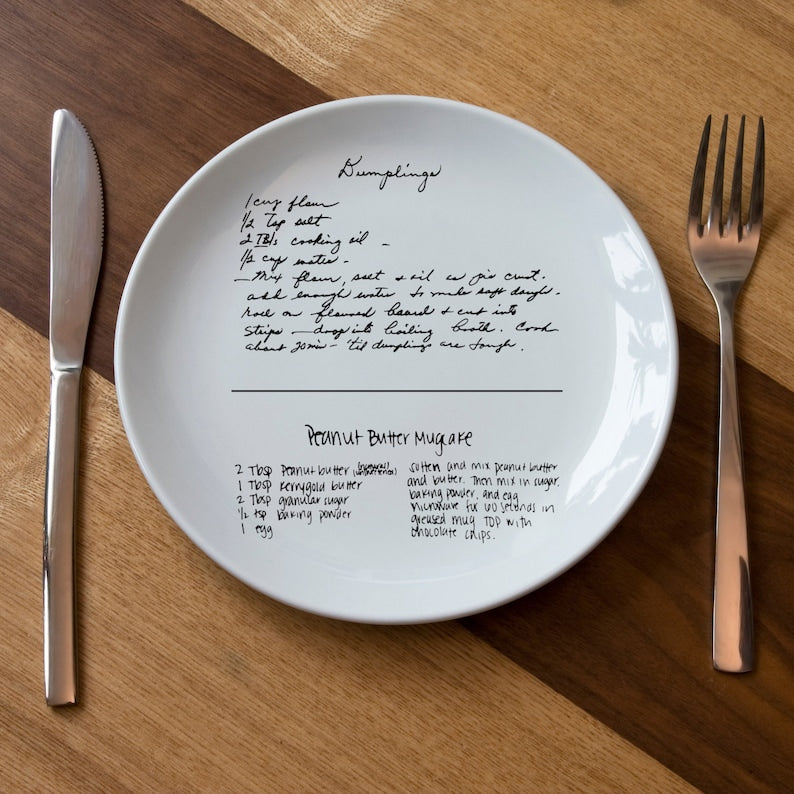 Dumplings
1 cup flour
1/2 Tsp salt
2 TBls cooking oil -
1/2 cup water -
- Mix flour, salt & oil as pie crust.
add enough water to make soft dough.
roll on floured board & cut into
strips - drop into boiling broth. Cook
about 20 min - 'til dumplings are tough.
Peanut Butter Mugcake
2 Tbsp Peanut butter
1 Tbsp Kerrygold butter
2 Tbsp granular sugar
1/2 tsp baking powder
1 egg
Soften and mix peanut butter
and butter. Then mix in sugar,
baking powder, and egg
microwave for 60 seconds in
greased mug TOP with
chocolate chips.